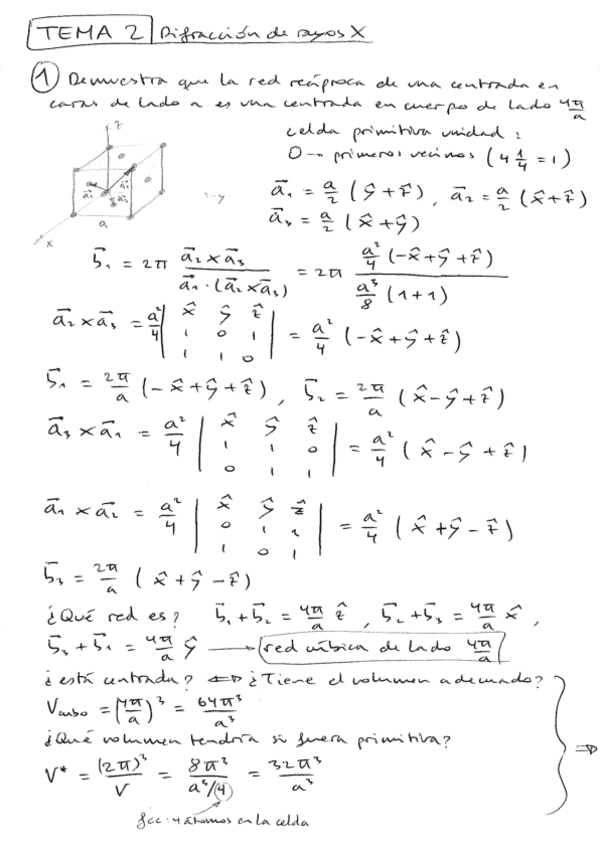 TEMA 2 Difracción de rayos X
① Demuestra que la red recíproca de una centrada en
caras de lado a es una centrada en cuerpo de lado 4π/a
celda primitiva unidad:
O → primeros vecinos (4 1/4 = 1)
z
a⃗₁ = a/2 (ŷ + ẑ), a⃗₂ = a/2 (x̂ + ẑ)
y
a⃗₃ = a/2 (x̂ + ŷ)
x
a
b⃗₁ = 2π (a⃗₂ × a⃗₃)/(a⃗₁ · (a⃗₂ × a⃗₃)) = 2π (a²/4 (-x̂ + ŷ + ẑ))/(a³/8 (1+1))
a⃗₂ × a⃗₃ = a²/4 | x̂ ŷ ẑ ; 1 0 1 ; 1 1 0 | = a²/4 (-x̂ + ŷ + ẑ)
b⃗₁ = 2π/a (-x̂ + ŷ + ẑ), b⃗₂ = 2π/a (x̂ - ŷ + ẑ)
a⃗₃ × a⃗₁ = a²/4 | x̂ ŷ ẑ ; 1 1 0 ; 0 1 1 | = a²/4 (x̂ - ŷ + ẑ)
a⃗₁ × a⃗₂ = a²/4 | x̂ ŷ ẑ ; 0 1 1 ; 1 0 1 | = a²/4 (x̂ + ŷ - ẑ)
b⃗₃ = 2π/a (x̂ + ŷ - ẑ)
¿Qué red es? b⃗₁ + b⃗₂ = 4π/a ẑ, b⃗₂ + b⃗₃ = 4π/a x̂,
b⃗₃ + b⃗₁ = 4π/a ŷ → red cúbica de lado 4π/a
¿está centrada? ⇔ ¿Tiene el volumen adecuado?
V cubo = (4π/a)³ = 64π³/a³
¿Qué volumen tendría si fuera primitiva? ⇒
V* = (2π)³/V = 8π³/(a³/4) = 32π³/a³
fcc: 4 átomos en la celda